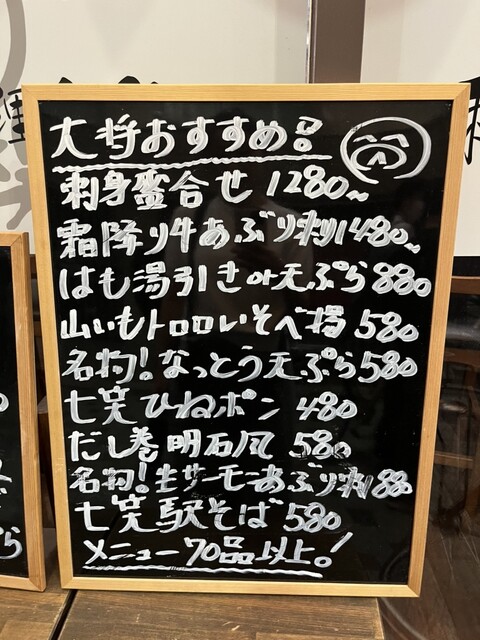 大将おすすめ品
刺身盛合せ 1280~
霜降り牛あぶり刺1480~
はも湯引きor天ぷら880
山いもトロロいそべ揚580
名物!なっとう天ぷら580
七宝ひねポン 480
だし巻明石風 580
名物!生サーモンあぶり刺880
七宝駅そば580
メニュー70品以上。!